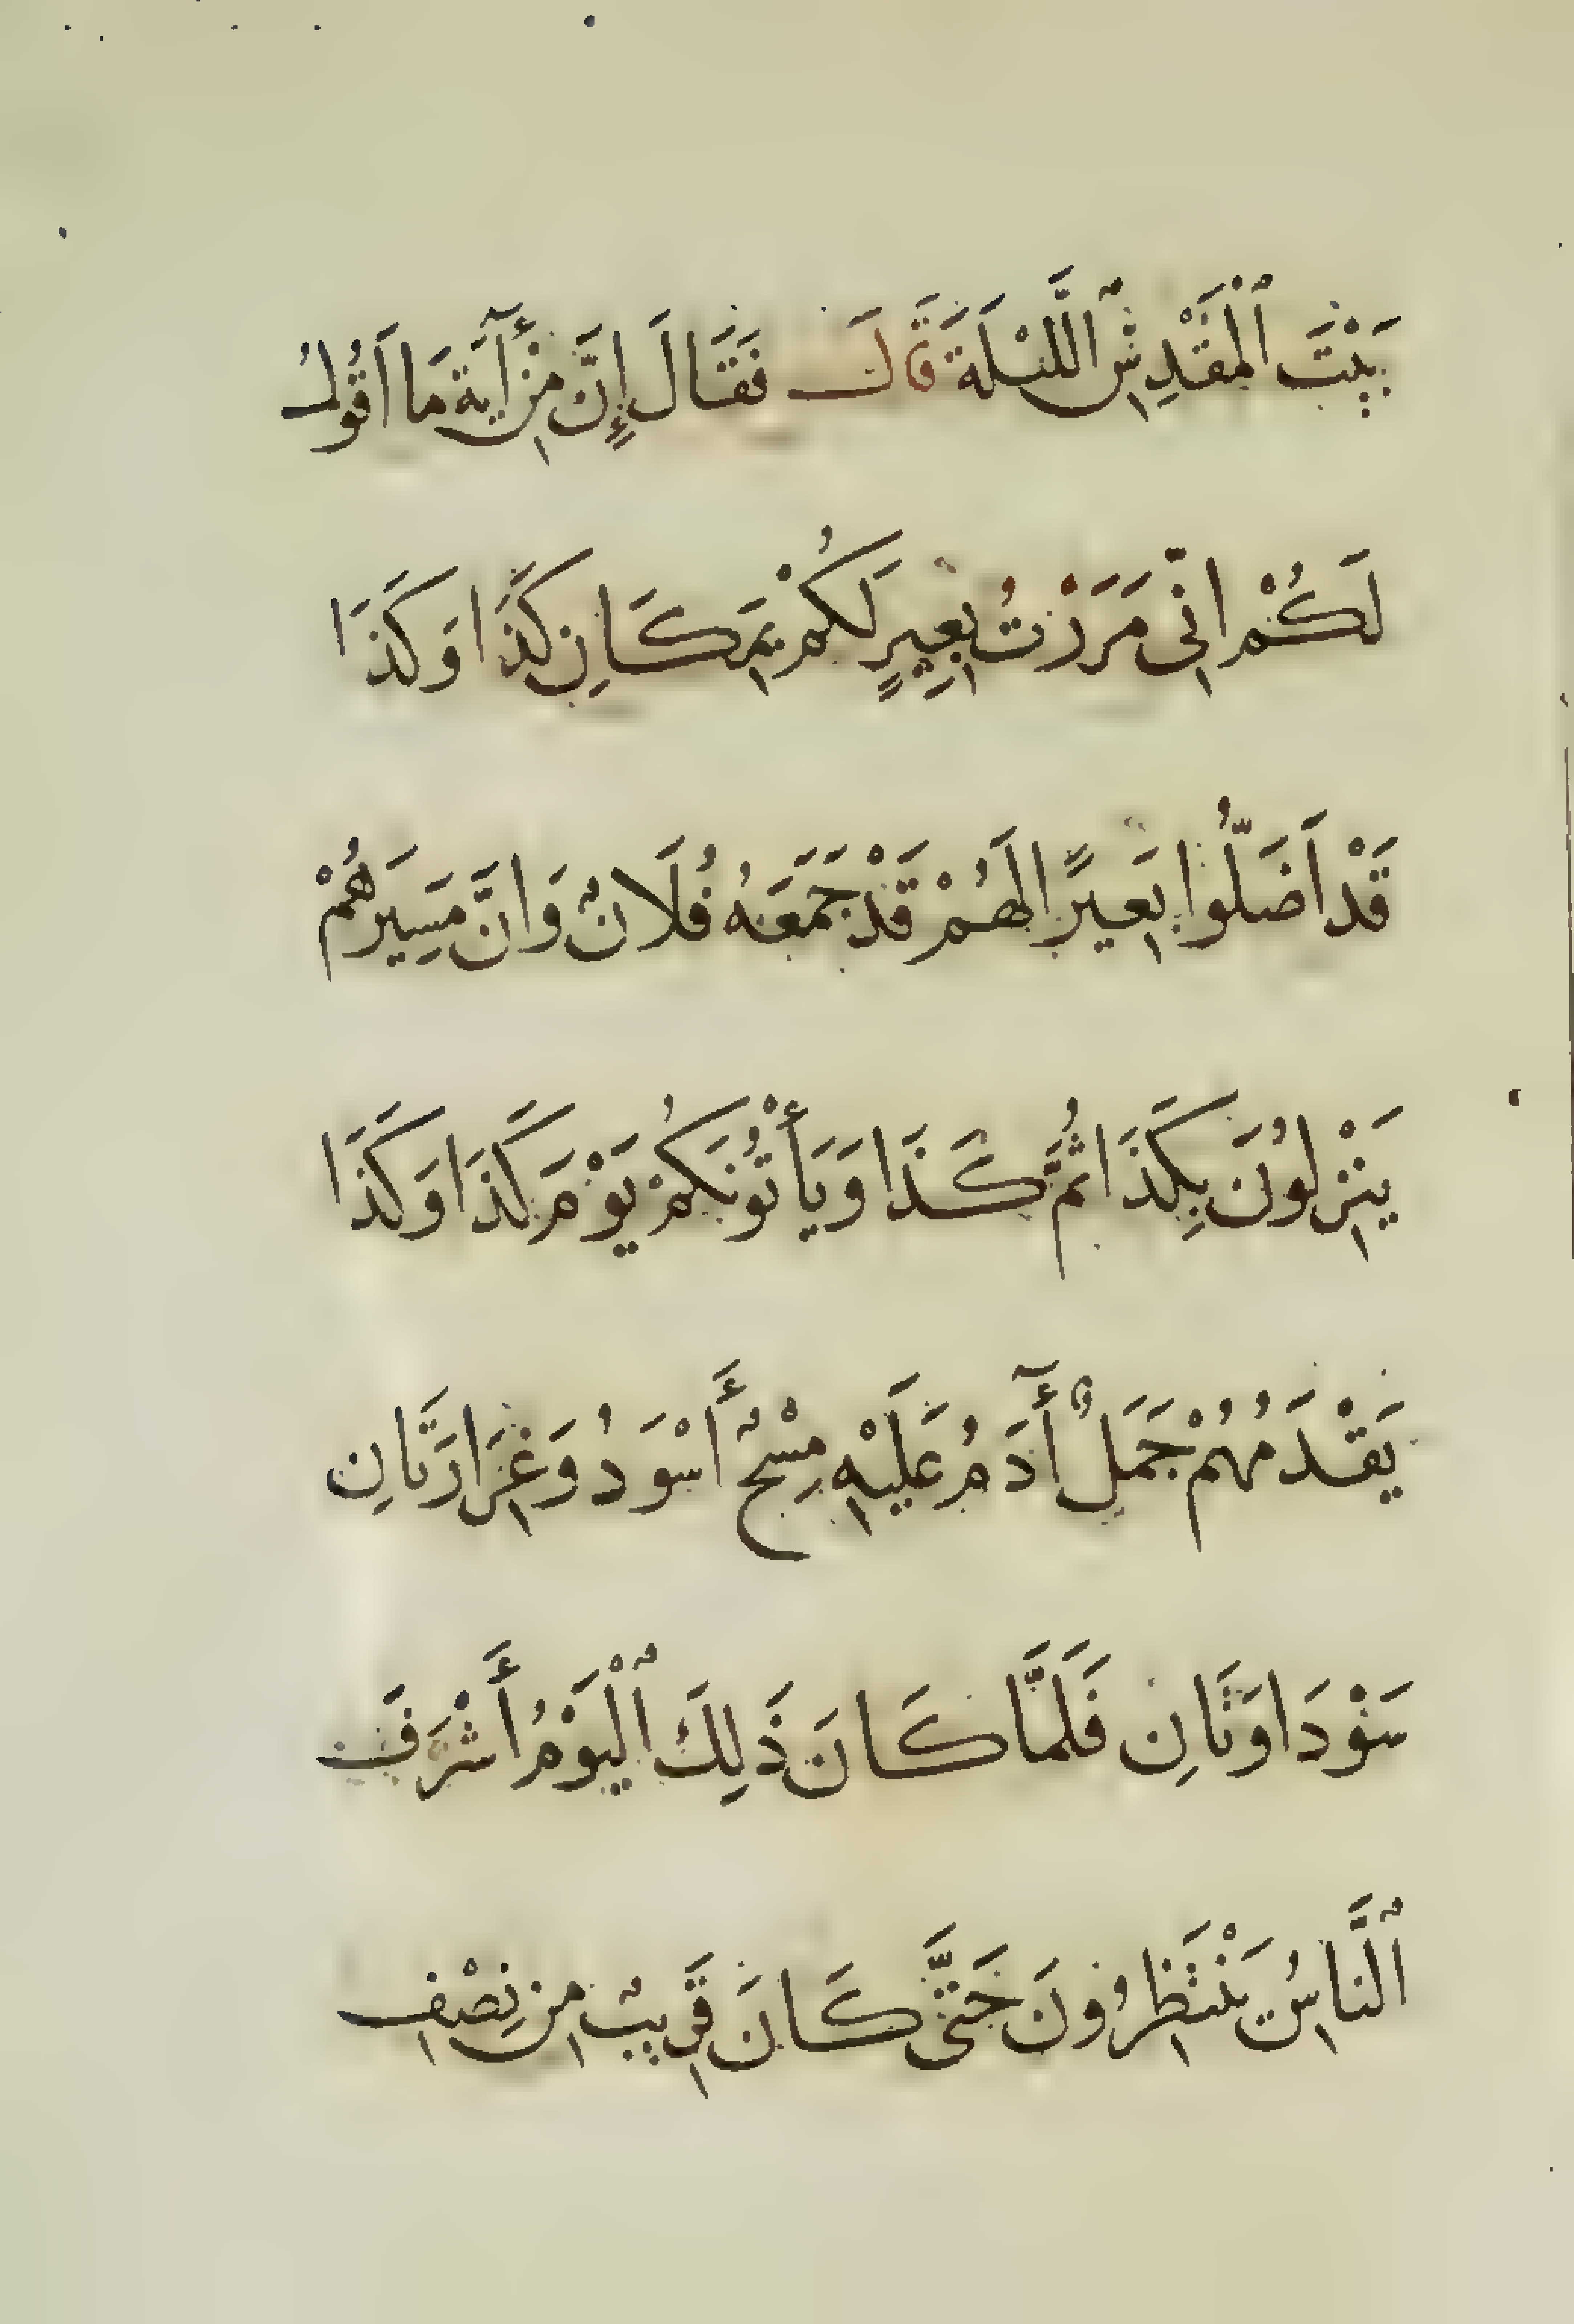 بَيْتَ ٱلْمَقْدِسِ ٱللَّيْلَةَ قَالَ فَقَالَ إِنَّ مِنْ أٓيَةِ مَا اَقُولُ
لَكُمْ اِنِّى مَرَرْتُ بِعِيرٍ لَكُمْ بِمَكَانِ كَذَا وَكَذَا
قَدْ اَضَلُّوا بَعِيرًا لَهُمْ قَدْ جَمَعَهُ فُلَانٌ وَاِنَّ مَسِيرَهُمْ
يَنْزِلُونَ بِكَذَا ثُمَّ كَذَا وَيَأْتُونَكُمْ يَوْمَ كَذَا وَكَذَا
يَقْدَمُهُمْ جَمَلٌ أٓدَمُ عَلَيْهِ مِسْحٌ أَسْوَدُ وَغِرَارَتَانِ
سَوْدَاوَتَانِ فَلَمَّا كَانَ ذَلِكَ ٱلْيَوْمُ أَشْرَفَ
ٱلنَّاسُ يَنْتَظِرُونَ حَتَّى كَانَ قَرِيبٌ مِنْ نِصْفِ